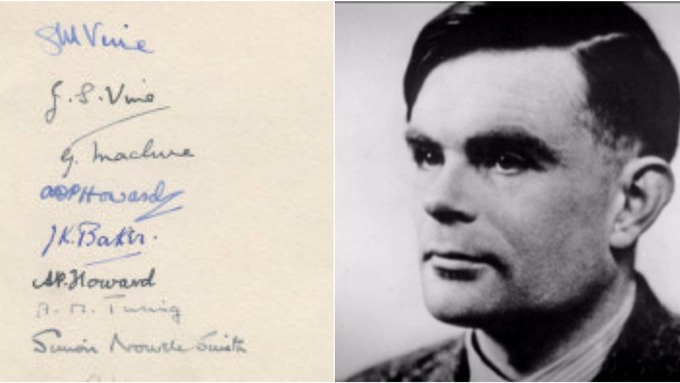 SM Vine
G. S. Vine
G. Maclure
ADP Howard
J.K. Baker.
A.P. Howard
A. M. Turing
Simon Nowell-Smith